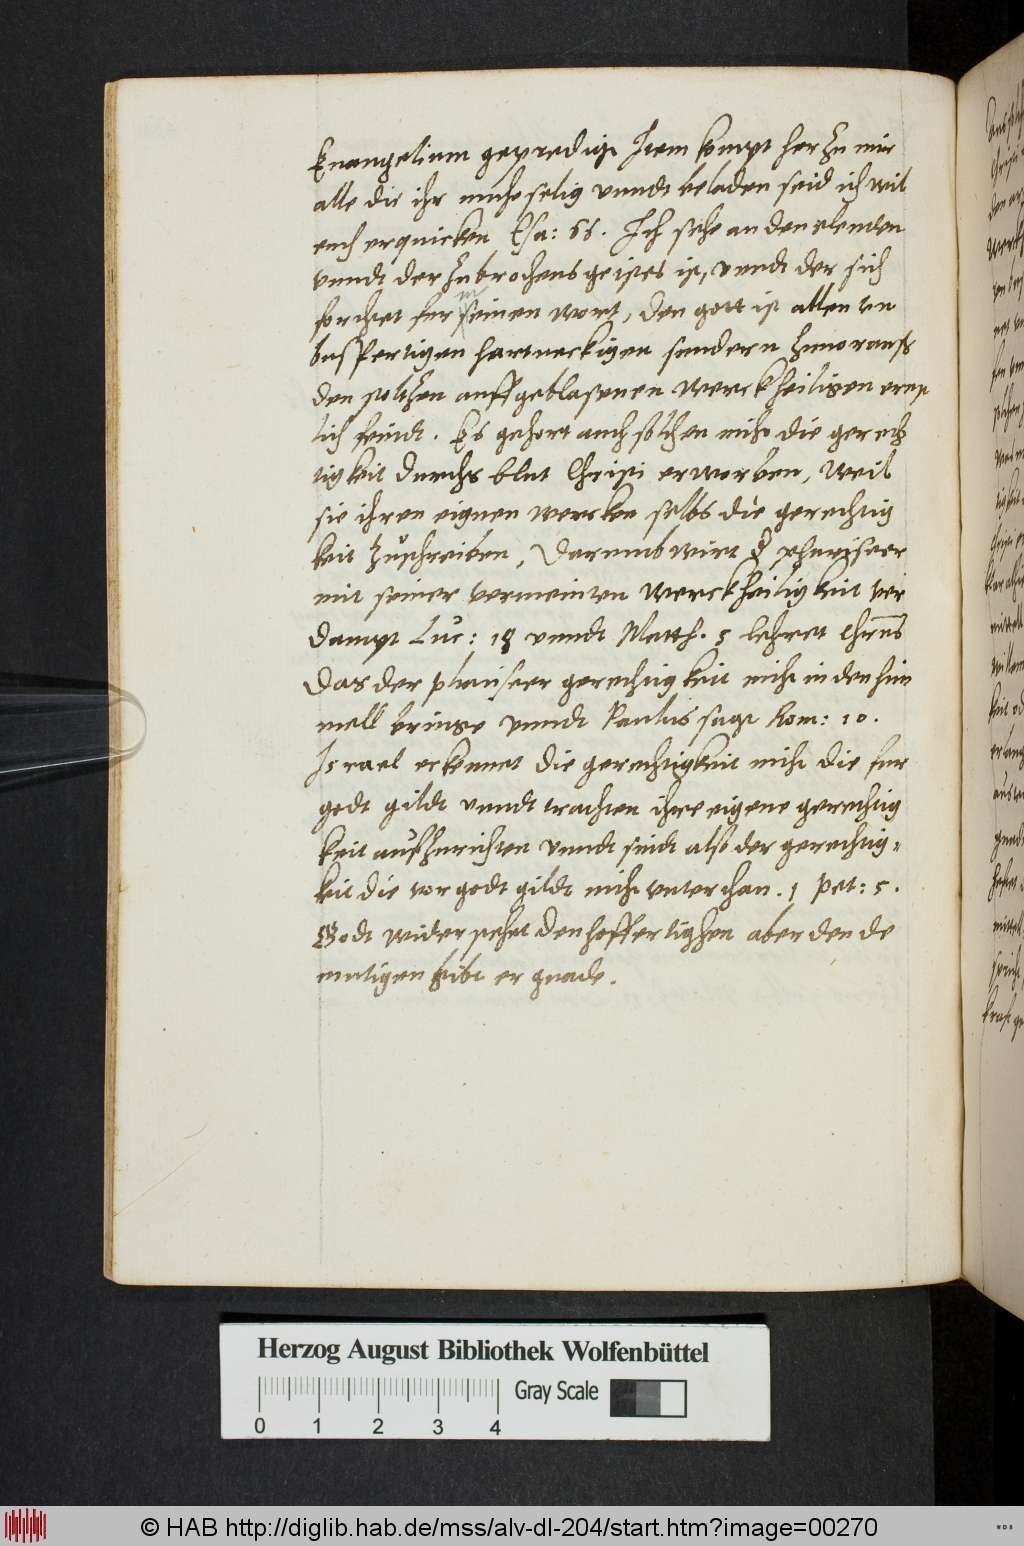 Euangelium gepredigt Item kompt her zu mir
alle die ihr muheselig vnndt beladen seid ich wil
euch erquicken Esa: 66. Ich sehe an den elenden
vnndt der zubrochens geistes ist, vnndt der sich
forchtet fur seinen wort, den gott ist allen vn
busfertigen hartneckigen sundern zuuoraus
den stoltzen auffgeblasenen werckheiligen ernst
lich feindt. Es gehort auch solchen nicht die gerech
tigkeit durchs blut Christi erworben, weil
sie ihren eignen wercken selbs die gerechtig
keit zuschreiben, Darumb wirt d phariseer
mit seiner vermeinten werckheiligkeit ver
dampt Luc: 18 vnndt Matth. 5 lehret Chrus
Das der phariseer gerechtigkeit nicht in den him
mell bringe vnndt Paulus sagt Rom: 10.
Israel erkennet die gerechtigkeit nicht die fur
godt gildt vnndt trachten ihre eigene gerechtig
keit aufzurichten vnndt sindt also der gerechtig-
keit die vor godt gildt nicht vnterthan. 1 Pet: 5.
Godt widerstehet den hoffertighen aber den de
mutigen gibt er gnade.
Herzog August Bibliothek Wolfenbüttel
Gray Scale
0 1 2 3 4
© HAB http://diglib.hab.de/mss/alv-dl-204/start.htm?image=00270